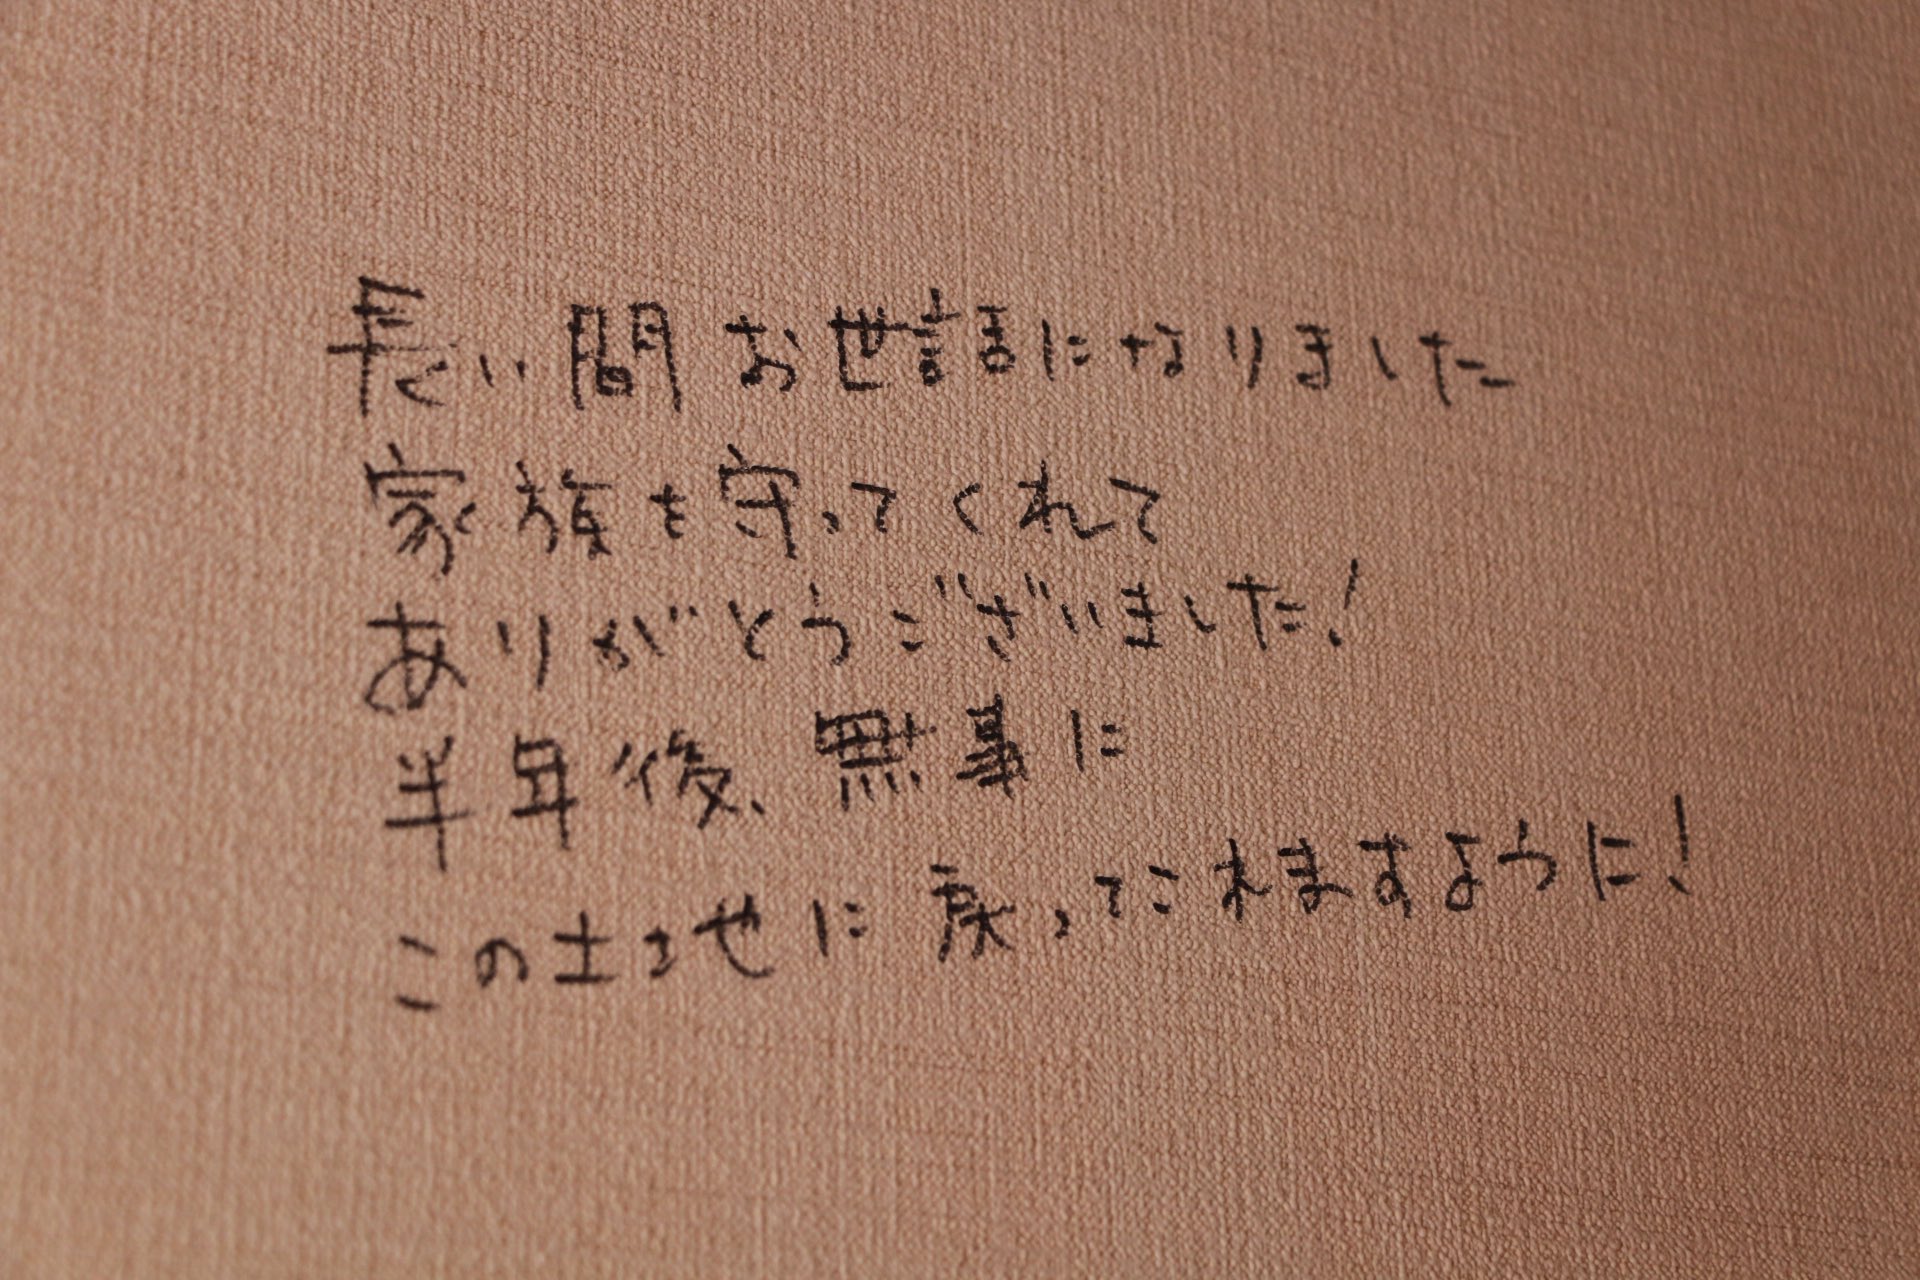 長い間お世話になりました
家族を守ってくれて
ありがとうございました!
半年後、無事に
この土地に戻ってこれますように!